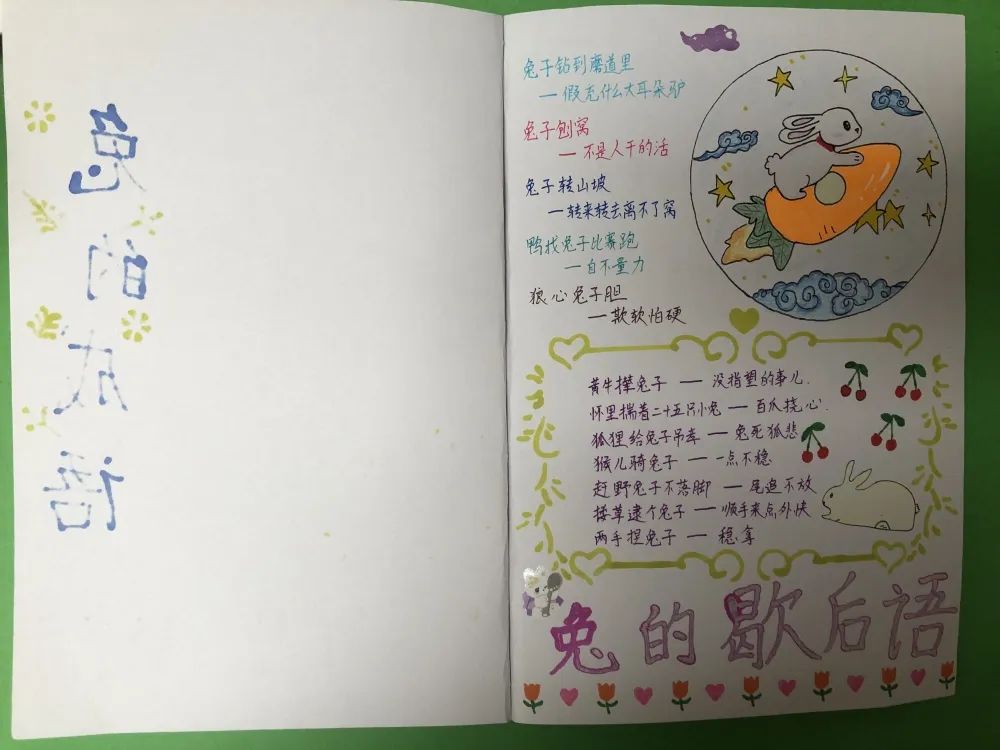 兔的成语
兔子钻到磨道里
— 假充什么大耳朵驴
兔子刨窝
— 不是人干的活
兔子转山坡
— 转来转去离不了窝
鸭找兔子比赛跑
— 自不量力
狼心兔子胆
— 欺软怕硬
黄牛撵兔子 — 没指望的事儿.
怀里揣着二十五只小兔 — 百爪挠心.
狐狸给兔子吊孝 — 兔死狐悲
猴儿骑兔子 — 一点不稳
赶野兔子不落脚 — 尾追不放
搂草逮个兔子 — 顺手来点外快
两手捏兔子 — 稳拿
兔的歇后语